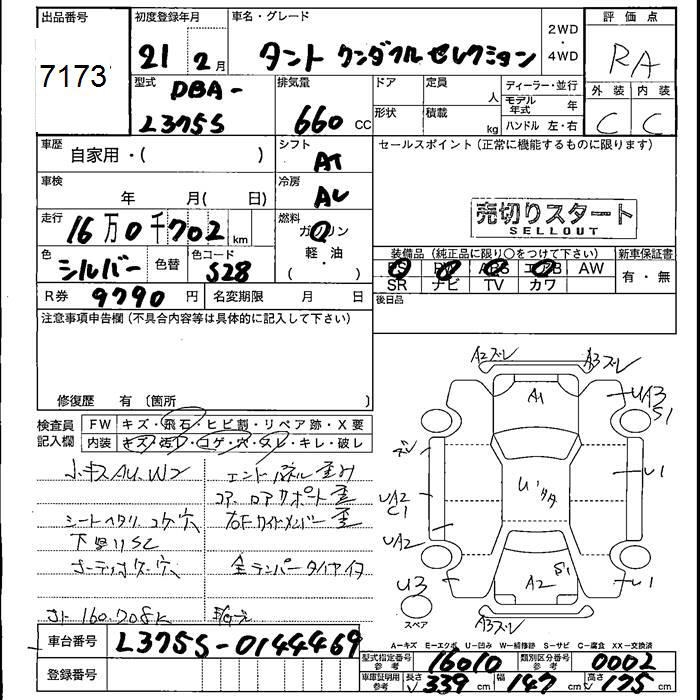 出品番号
7173
初度登録年月
21年2月
車名・グレード
タント ワンダフルセレクション
2WD・4WD
評価点
RA
型式
DBA-
L375S
排気量
660 cc
ドア
定員
人
形状
積載
kg
ディーラー・並行
モデル年式 年
ハンドル 左・右
外装
内装
C
C
車歴
自家用・( )
シフト
AT
セールスポイント (正常に機能するものに限ります)
車検
年 月( 日)
冷房
売切りスタート
SELLOUT
走行
16万0千702km
燃料
ガソリン
軽・油
( ・ )
色
シルバー
色替
色コード
S28
装備品 (純正品に限り○をつけて下さい)
新車保証書
PS PW ABS エアB AW
SR ナビ TV カワ
有・無
R券 9790 円
名変期限 月 日
後日品
注意事項申告欄 (不具合内容等は具体的に記入して下さい)
修復歴 有 〔箇所 〕
検査員
記入欄
FW キズ・飛石・ヒビ割・リペア跡・X要
内装 キズ・汚レ・コゲ・穴・スレ・キレ・破レ
小キズAU、W2
エンドパネル歪み
コアロアサポート歪
シートヘタリ、コゲ穴
右Fサイドメンバー歪
全テンパータイヤイタ
メーター160.708K
A2ズレ
A3ズレ
A1
UA3
S1
ズレ
U1
UA2
C1
UA2
U3
スペア
S1
A2
U1
A3ズレ
A-キズ E-エクボ U-凹み W-補修跡 S-サビ C-腐食 XX-交換済
車台番号
L375S-0144469
登録番号
型式指定番号
参考
16010
類別区分番号
参考
0002
車庫証明用
参考
長さ 339 cm
幅 147 cm
高さ 175 cm